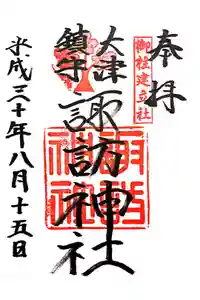 奉拝
御柱建立社
大津
鎮守
諏訪神社
平成三十年八月十五日